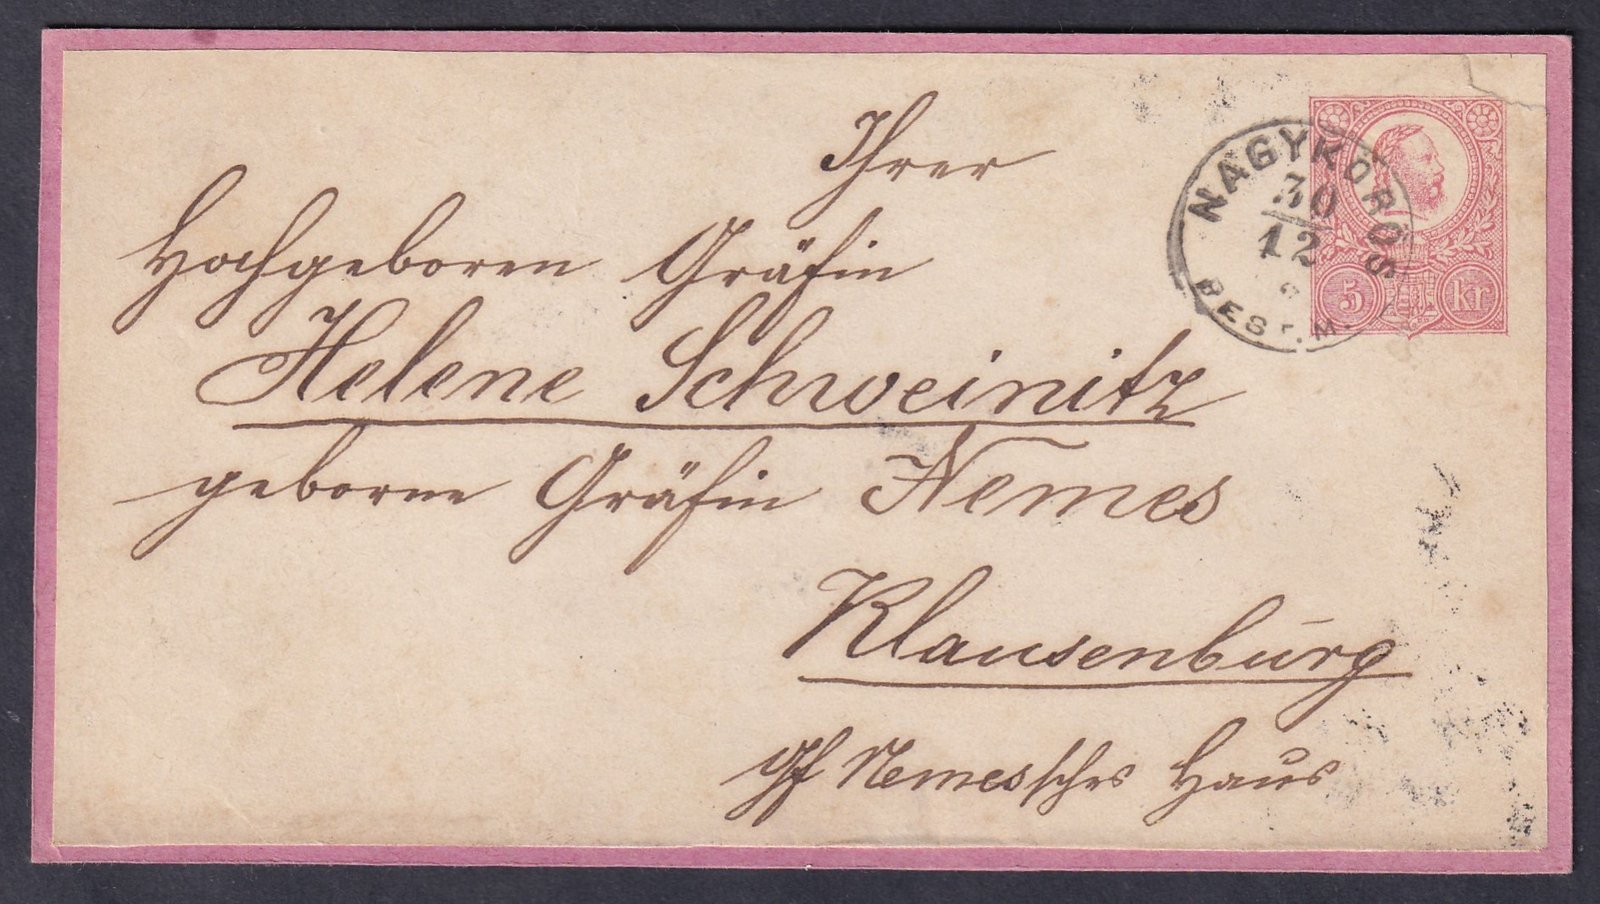 Ihrer
Hochgeboren Gräfin
Helene Schweinitz
geborne Gräfin Nemes
Klausenburg
gf Nemessches Haus
NAGYKŐRÖS
30
12
PEST M.
5 kr